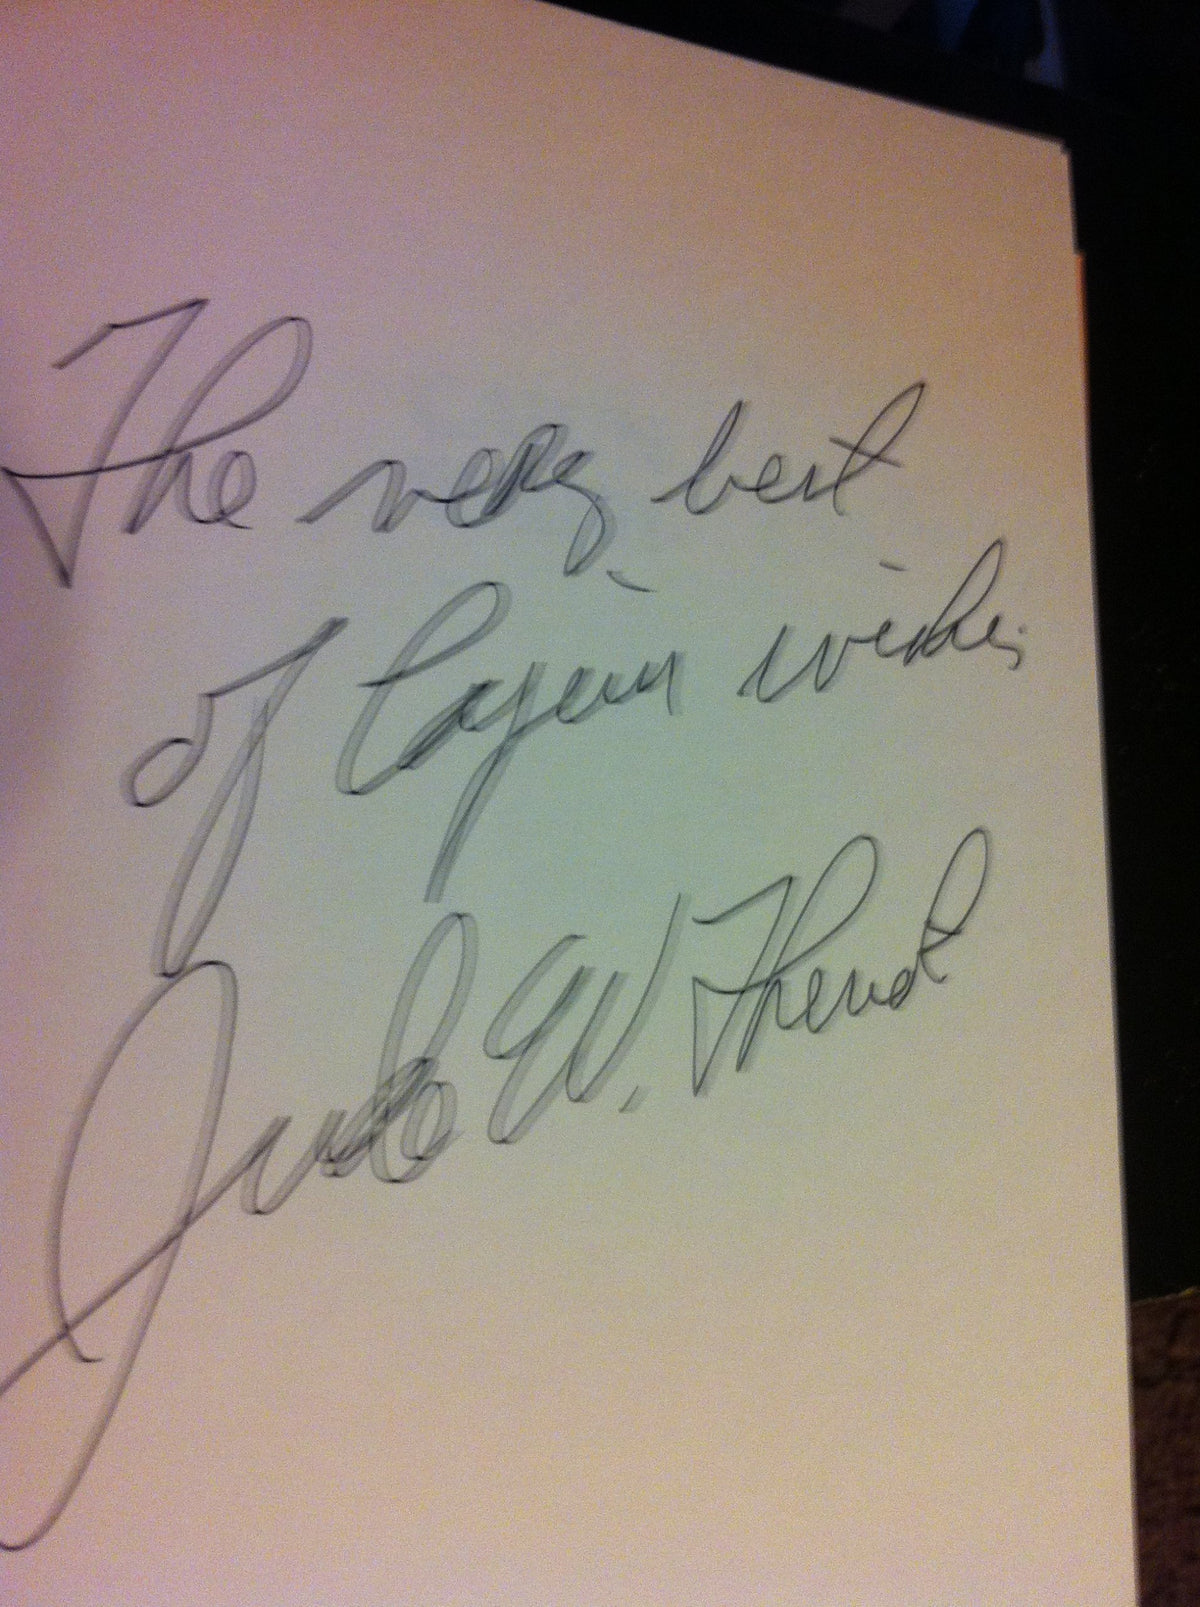 The very best
of Cajun wishes
Jude W. Theriot